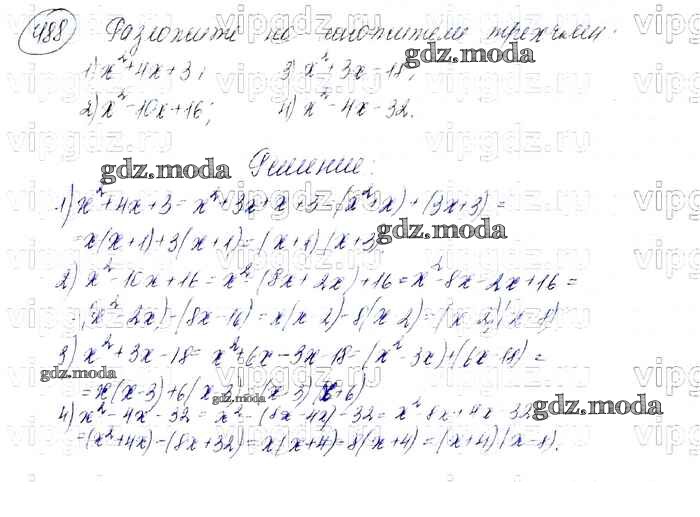 488 Разложите на множители трехчлен:
1) x²+4x+3; 3) x²+3x-18;
2) x²-10x+16; 4) x²-4x-32.
Решение:
1) x²+4x+3 = x²+3x+x+3 = (x²+x)+(3x+3) =
= x(x+1)+3(x+1) = (x+1)(x+3)
2) x²-10x+16 = x²-(8x+2x)+16 = x²-8x-2x+16 =
= (x²-2x)-(8x-16) = x(x-2)-8(x-2) = (x-2)(x-8)
3) x²+3x-18 = x²+6x-3x-18 = (x²-3x)+(6x-18) =
= x(x-3)+6(x-3) = (x-3)(x+6)
4) x²-4x-32 = x²-(8x-4x)-32 = x²-8x+4x-32 =
= (x²+4x)-(8x+32) = x(x+4)-8(x+4) = (x+4)(x-8).
gdz.moda
gdz.moda
gdz.moda
gdz.moda
gdz.moda
gdz.moda